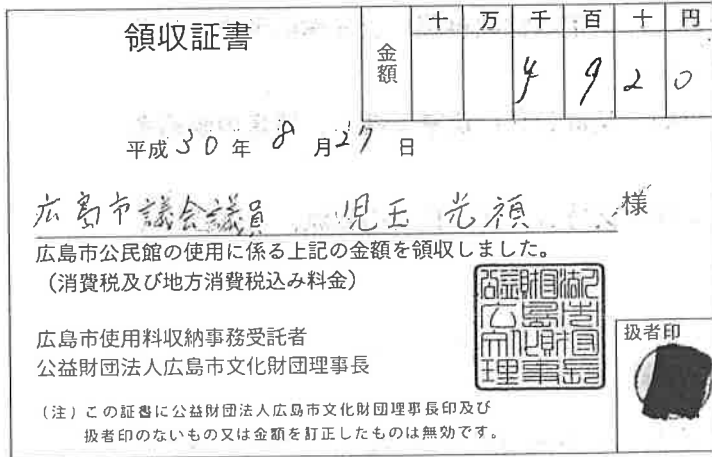 領収証書
金額
十 万 千 百 十 円
¥ 9 2 0
平成 30 年 8 月 27 日
広島市議会議員 児玉 光禎 様
広島市公民館の使用に係る上記の金額を領収しました。
（消費税及び地方消費税込み料金）
広島市使用料収納事務受託者
公益財団法人広島市文化財団理事長
扱者印
（注）この証書に公益財団法人広島市文化財団理事長印及び
扱者印のないもの又は金額を訂正したものは無効です。